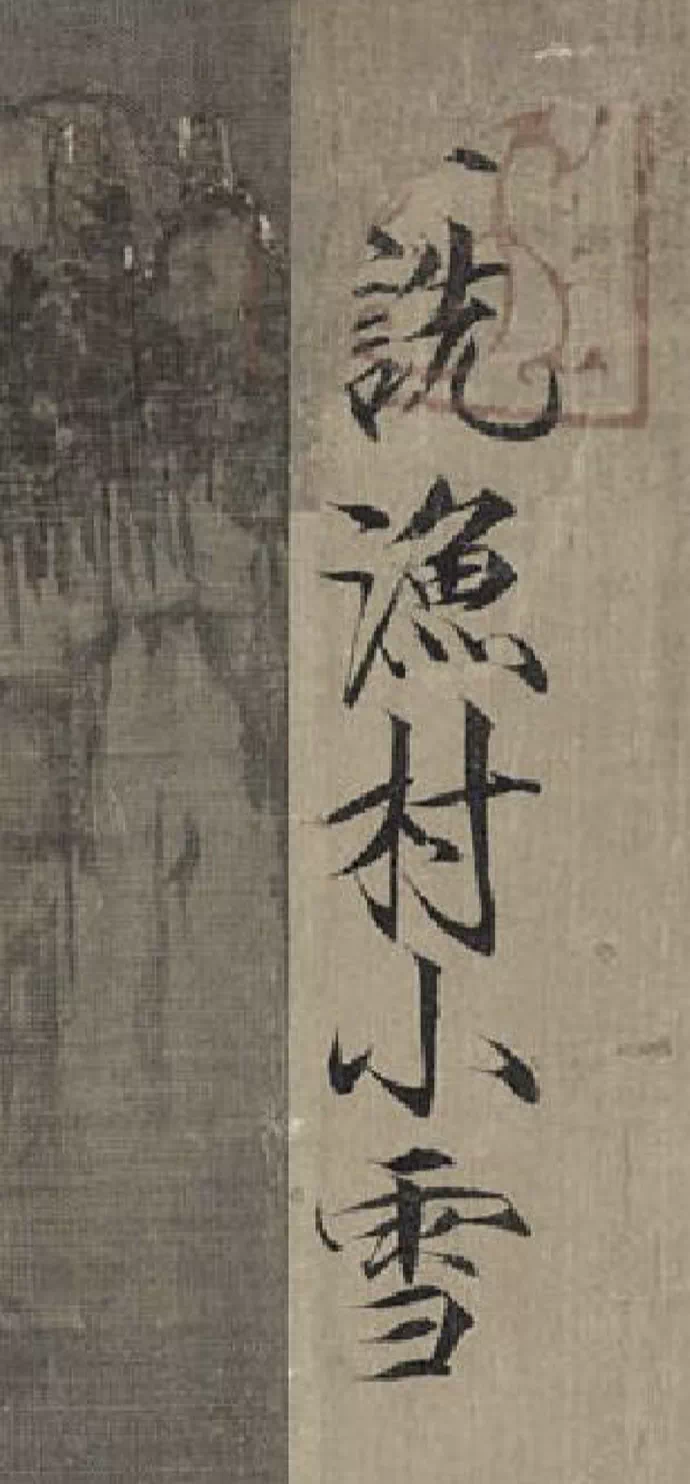 詵漁村小雪